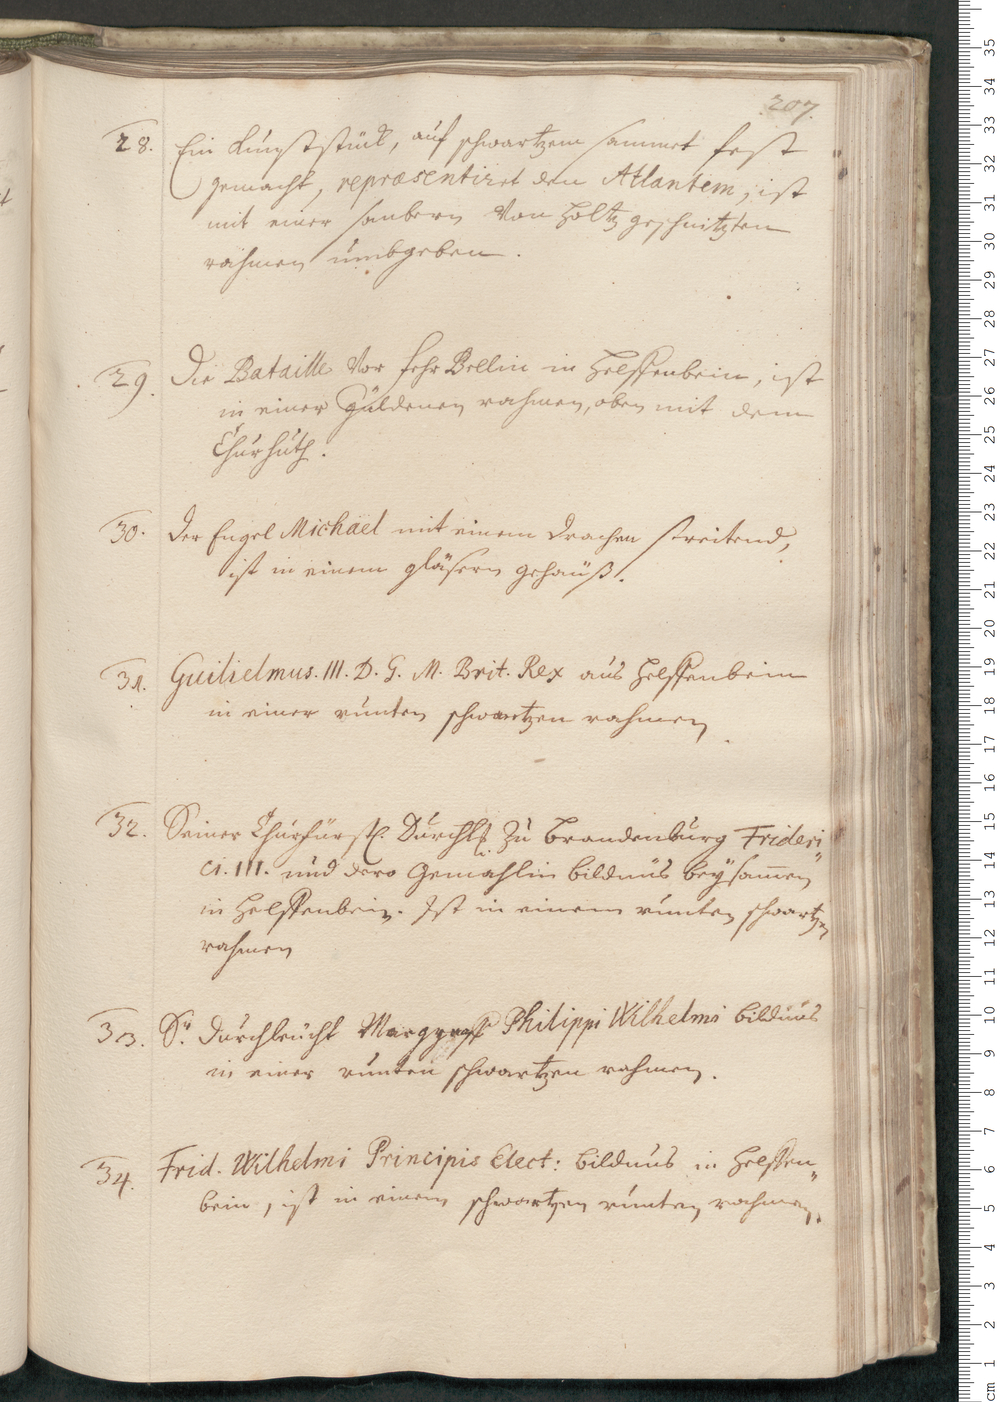 207.
28. Ein Kunststück, auf schwartzem sammet fest
gemacht, repræsentiret den Atlantem, ist
mit einer saubern von Holtz geschnitzten
rahmen umbgeben.
29. Die Bataille vor FehrBellin in Helffenbein, ist
in einer güldenen rahmen, oben mit dem
Churhuth.
30. Der Engel Michäel mit einem Drachen streitend,
ist in einem gläsern gehäuß.
31. Guilielmus. III. D. G. M. Brit. Rex aus Helffenbein
in einer runten schwartzen rahmen.
32. Seiner Churfürstl. Durchl. zu Brandenburg Frideri„
ci. III. und dero Gemahlin bildnüs beysam̅en
in Helffenbein. Ist in einem runten schwartzen
rahmen
33. Sr. Durchleucht Marggraff Philippi Wilhelmi bildnüs
in einer runten schwartzen rahmen.
34. Frid. Wilhelmi Principis Elect: bildnüs in Helffen„
bein, ist in einem schwartzen runten rahmen.
cm 1 2 3 4 5 6 7 8 9 10 11 12 13 14 15 16 17 18 19 20 21 22 23 24 25 26 27 28 29 30 31 32 33 34 35